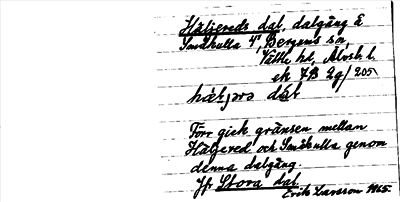 Häljereds dal, dalgång å
Småkulla 4⁴, Bergums sn,
Vättle hd, Älvsb. l.
ek 7B 2g/205
dạt
Förr gick gränsen mellan
Häljered och Småkulla genom
denna dalgång.
Jfr Stora dal.
Erik Larsson 1965